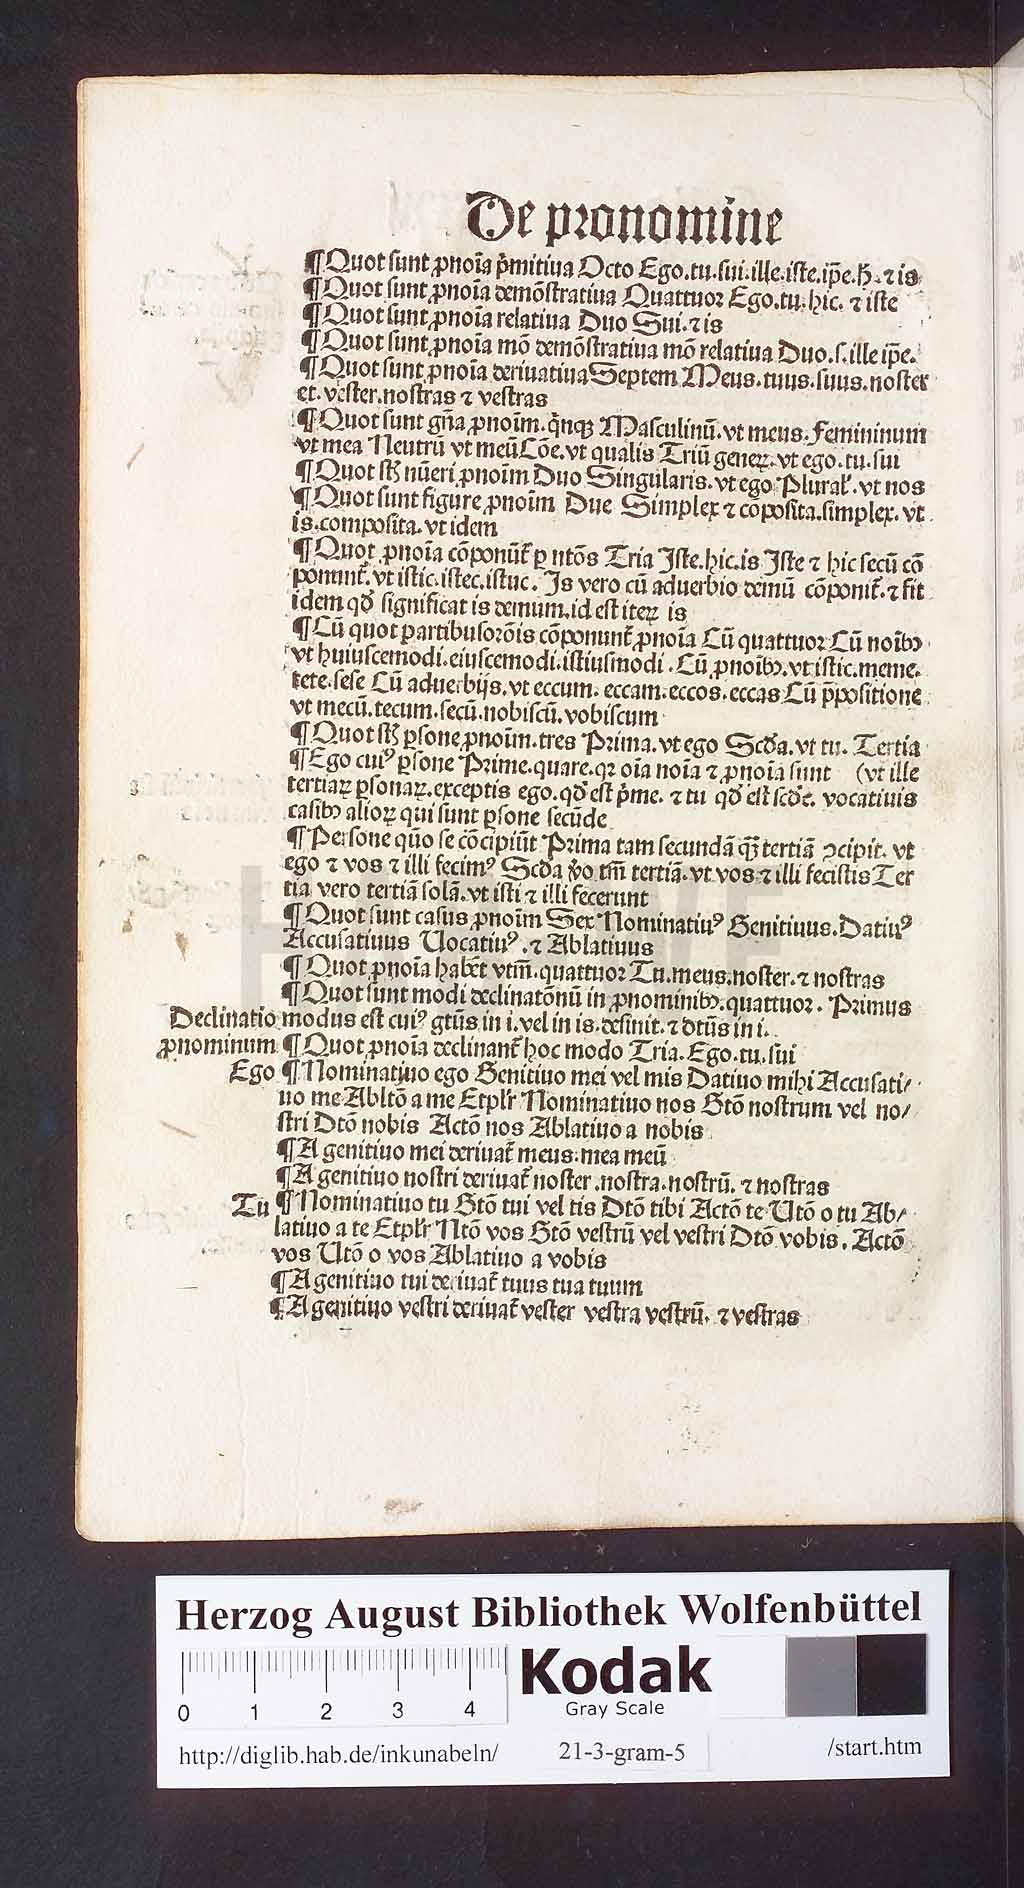 De pronomine
¶Quot sunt ꝓnoīa p̄mitiua Octo Ego.tu.sui.ille.iste.ip̄e.ħ.⁊ is
¶Quot sunt ꝓnoīa demōstratiua Quattuor Ego.tu.hic.⁊ iste
¶Quot sunt ꝓnoīa relatiua Duo Sui.⁊ is
¶Quot sunt ꝓnoīa mō demōstratiua mō relatiua Duo.s.ille ip̄e.
¶Quot sunt ꝓnoīa deriuatiua Septem Meus.tuus.suus.noster
et.vester.nostras ⁊ vestras
¶Quot sunt gn̄a ꝓnoīm.q̄nqꝫ Masculinū.vt meus.Femininum
vt mea Neutrū vt meū Cōe.vt qualis Triū generꝝ.vt ego.tu.sui
¶Quot sꝉ nūeri ꝓnoīm Duo Singularis.vt ego Plural̓.vt nos
¶Quot sunt figure ꝓnoīm Due Simplex ⁊ cōposita.simplex.vt
is.composita.vt idem
¶Quot ꝓnoīa cōponūt᷑ ꝑ ntōs Tria Iste.hic.is Iste ⁊ hic secū cō
ponunt᷑.vt istic.istec.istuc. Is vero cū aduerbio demū cōponit᷑.⁊ fit
idem qd̓ significat is demum.id est iterꝝ is
¶Cū quot partibus orōis cōponunt᷑ ꝓnoīa Cū quattuor Cū noībꝰ
vt huiuscemodi.eiuscemodi.istiusmodi.Cū ꝓnoībꝰ.vt istic.meme.
tete.sese Cū aduerbijs.vt eccum.eccam.eccos.eccas Cū p̄positione
vt mecū.tecum.secū.nobiscū.vobiscum
¶Quot sꝉ ꝑsone ꝓnoīm.tres Prima.vt ego Scd̓a.vt tu. Tertia
¶Ego cuiꝰ ꝑsone Prime.quare.qꝛ oīa noīa ⁊ ꝓnoīa sunt (vt ille
tertiaꝝ ꝑsonaꝝ.exceptis ego.qd̓ est p̄me.⁊ tu qd̓ est scd̓e. vocatiuis
casibꝰ alioꝝ qui sunt ꝑsone secūde
¶Persone quō se cōcipiūt Prima tam secundā qꝫ tertiā ꝯcipit.vt
ego ⁊ vos ⁊ illi fecimꝰ Scd̓a v̓o tm̄ tertiā.vt vos ⁊ illi fecistis Ter
tia vero tertiā solā.vt isti ⁊ illi fecerunt
¶Quot sunt casus ꝓnoīm Sex Nominatiuꝰ Genitiuus.Datiuꝰ
Accusatiuus Uocatiuꝰ.⁊ Ablatiuus
¶Quot ꝓnoīa habēt vtm̄.quattuor Tu.meus.noster.⁊ nostras
¶Quot sunt modi declinatōnū in ꝓnominibꝰ.quattuor. Primus
Declinatio modus est cuiꝰ gtūs in i.vel in is.desinit.⁊ dtūs in i.
ꝓnominum ¶Quot ꝓnoīa declinant᷑ hoc modo Tria.Ego.tu.sui
Ego ¶Nominatiuo ego Genitiuo mei vel mis Datiuo mihi Accusati/
uo me Abltō a me Et pl̓r Nominatiuo nos Gtō nostrum vel no/
stri Dtō nobis Actō nos Ablatiuo a nobis
¶A genitiuo mei deriuat᷑ meus.mea meū
¶A genitiuo nostri deriuat᷑ noster.nostra.nostrū.⁊ nostras
Tu ¶Nominatiuo tu Gtō tui vel tis Dtō tibi Actō te Utō o tu Ab/
latiuo a te Et pl̓r Ntō vos Gtō vestrū vel vestri Dtō vobis.Actō
vos Utō o vos Ablatiuo a vobis
¶A genitiuo tui deriuat᷑ tuus tua tuum
¶A genitiuo vestri deriuat᷑ vester vestra vestrū.⁊ vestras
Herzog August Bibliothek Wolfenbüttel
0 1 2 3 4 Kodak
Gray Scale
http://diglib.hab.de/inkunabeln/ 21-3-gram-5 /start.htm